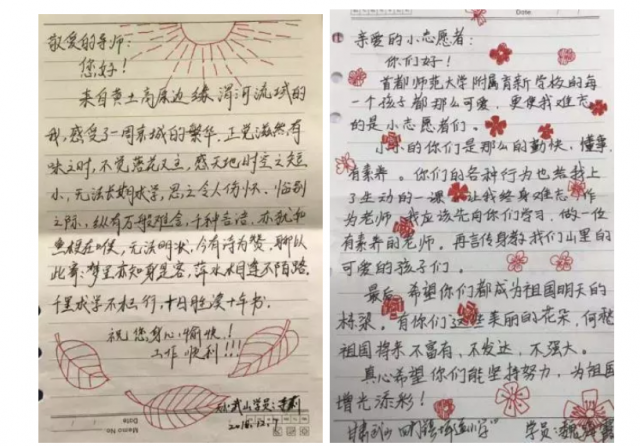 敬爱的导师:
您好!
来自黄土高原边缘渭河流域的
我,感受了一周京城的繁华,正觉滋然有
味之时,不觉落花又立,感天地时空之短
小,无法长期求学,思之令人伤怀。临别
之际,纵有万般难舍,千种告语,亦犹如
鱼梗在喉,无法明状,今有诗为赞,聊以
此寄:梦里亦知身是客,萍水相逢不陌路。
千里求学不虚行,十日胜读十年书。
祝您身心愉快!
工作顺利!!!
武山学员:
2018.12.7
Memo No.
Date
亲爱的小志愿者:
你们好!
首都师范大学附属育新学校的每
一个孩子都那么可爱,更使我难忘
的是小志愿者们。
小小的你们是那么的勤快,懂事,
有素养。你们的各种行为也给我上
了生动的一课 让我终身难忘 作
为老师,我应该先向你们学习,做一位
有素养的老师。再言传身教我们山里的
可爱的孩子们。
最后,希望你们都成为祖国明天的
栋梁。有你们这些美丽的花朵,何愁
祖国将来不富有、不发达、不强大。
真心希望你们能坚持努力,为祖国
增光添彩!
甘肃武山 学员: